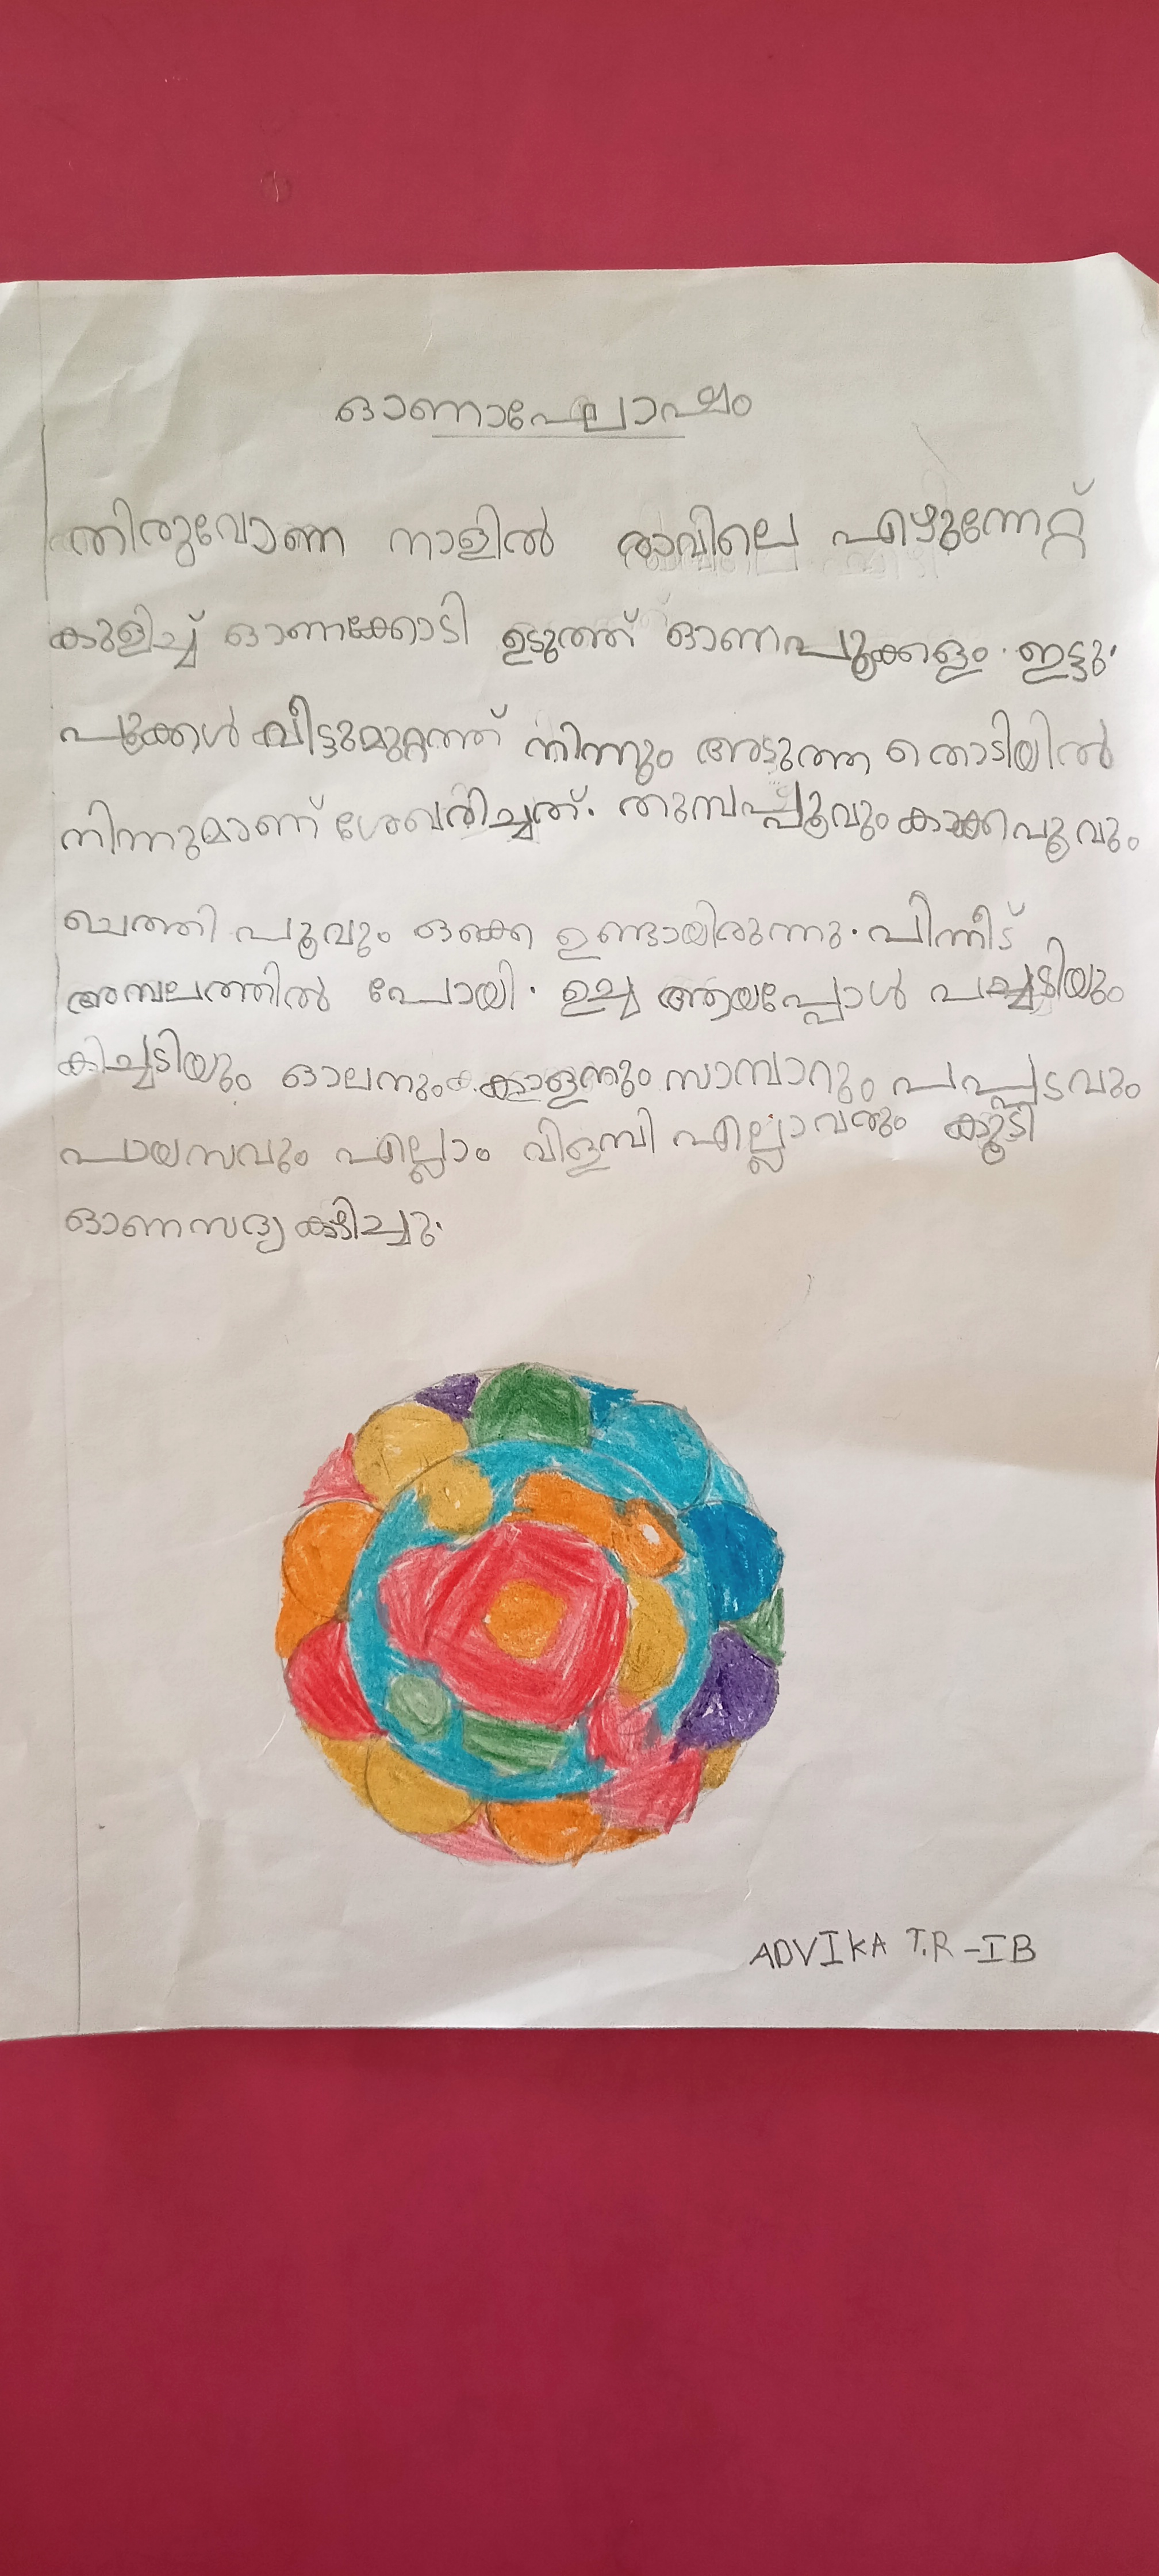 ഓണാഘോഷം
തിരുവോണ നാളിൽ രാവിലെ എഴുന്നേറ്റ്
കുളിച്ച് ഓണക്കോടി ഉടുത്ത് ഓണപൂക്കളം ഇട്ടു.
പൂക്കൾ വീട്ടുമുറ്റത്ത് നിന്നും അടുത്ത തൊടിയിൽ
നിന്നുമാണ് ശേഖരിച്ചത്. തുമ്പപ്പൂവും കാക്കപൂവും
ചെത്തി പൂവും ഒക്കെ ഉണ്ടായിരുന്നു. പിന്നീട്
അമ്പലത്തിൽ പോയി. ഉച്ച ആയപ്പോൾ പച്ചടിയും
കിച്ചടിയും ഓലനും കാളനും സാമ്പാറും പപ്പടവും
പായസവും എല്ലാം വിളമ്പി എല്ലാവരും കൂടി
ഓണസദ്യ കഴിച്ചു.
ADVIKA T.R - I B